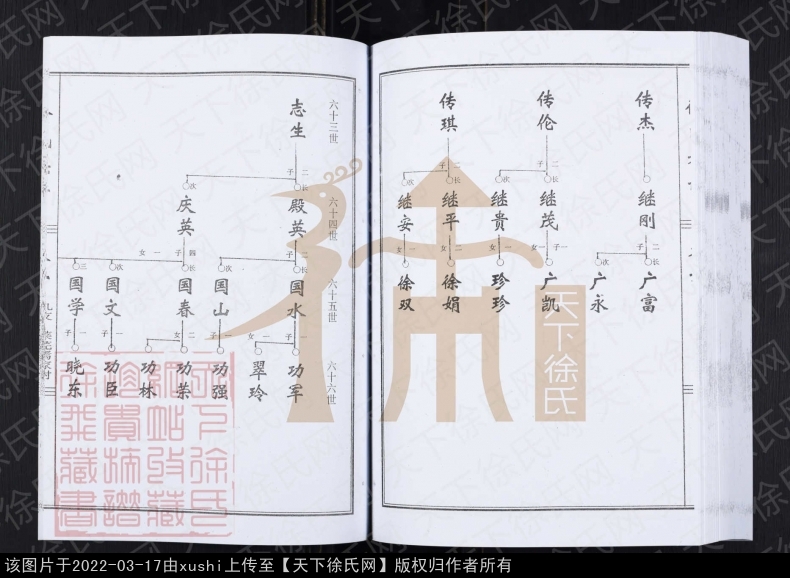 传杰
继刚
广富
广永
传伦
二子
长
次
继茂
继贵
一子
一女
广凯
珍珍
传琪
二子
长
次
继平
继安
二女
一女
徐娟
徐双
六十三世
六十四世
六十五世
六十六世
志生
二子
长
次
殿英
庆英
二子
长
次
四子
一女
次
三
国水
国山
国春
国文
国学
一子
一女
一子
二子
一子
一子
功军
翠玲
功强
功荣
功林
功臣
晓东
天下徐氏
天下徐氏网
该图片于2022-03-17由xushi上传至【天下徐氏网】版权归作者所有